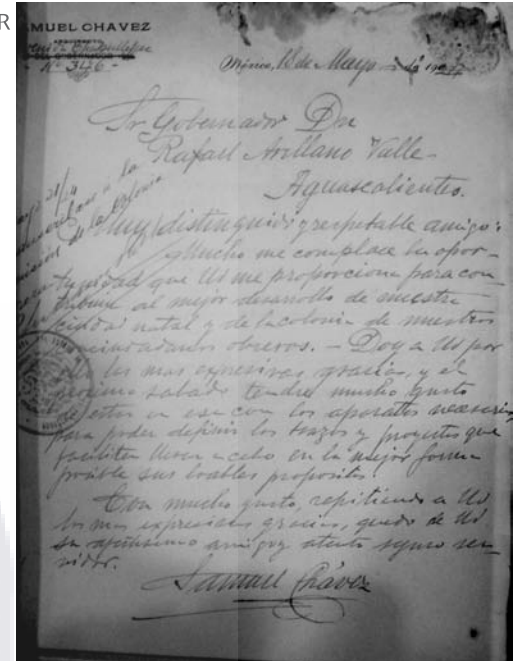 R
MUEL CHAVEZ
ARQUITECTO
Nº 326 -
México, 18 de Mayo de 19
Sr Gobernador Dn
Rafael Arellano Valle-
Aguascalientes.
Muy distinguido y respetable amigo:
Mucho me complace la opor-
tunidad que Ud me proporciona para con-
tribuir al mejor desarrollo de nuestra
ciudad natal y de la colonia de nuestros
conciudadanos obreros. - Doy a Ud por
ello las mas expresivas gracias, y el
próximo sabado tendré mucho gusto
de estar en esa con los aparatos necesarios
para poder definir los trazos y proyectos que
faciliten llevar a cabo en la mejor forma
posible sus loables propositos.
Con mucho gusto, repitiendo a Ud
las mas expresivas gracias, quedo de Ud
su afectisimo amigo y atento seguro ser-
vidor.
Samuel Chávez